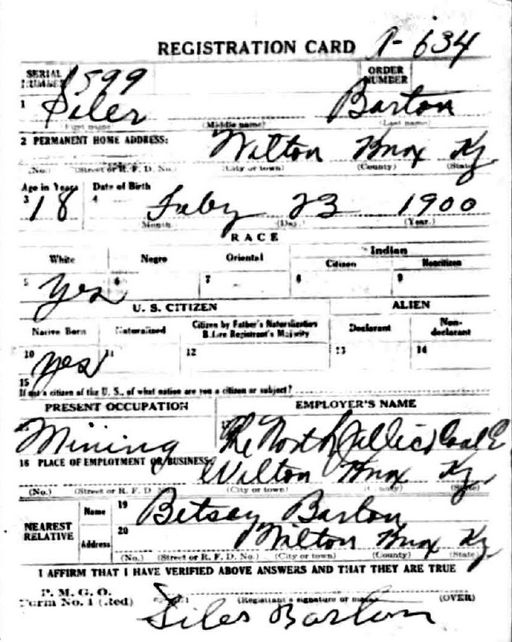 REGISTRATION CARD A-634
SERIAL NUMBER 1599 ORDER NUMBER
1 Siler Barton
First name (Middle name) (Last name)
2 PERMANENT HOME ADDRESS: Wilton Knox Ky
(No.) (Street or R. F. D. No.) (City or town) (County) (State)
Age in Years Date of Birth
3 18 4 Feby 23 1900
Month (Day) (Year.)
RACE
White Negro Oriental Indian
Citizen Noncitizen
5 Yes 6 7 8 9
U. S. CITIZEN ALIEN
Native Born Naturalized Citizen by Father's Naturalization Before Registrant's Majority Declarant Non-declarant
10 yes 11 12 13 14
15
If not a citizen of the U. S., of what nation are you a citizen or subject?
PRESENT OCCUPATION EMPLOYER'S NAME
Mining The North Jellico Coal C
18 PLACE OF EMPLOYMENT OR BUSINESS: Wilton Knox Ky
(No.) (Street or R. F. D. (City or town) (State)
NEAREST RELATIVE Name 19 Betsey Barton
Address 20 Wilton Knox Ky
(No.) (Street or R. F. D. No.) (City or town) (County) (State)
I AFFIRM THAT I HAVE VERIFIED ABOVE ANSWERS AND THAT THEY ARE TRUE
P. M. G. O.
Form No. 1 (Red) (Registrant's signature or mark) (OVER)
Siler Barton